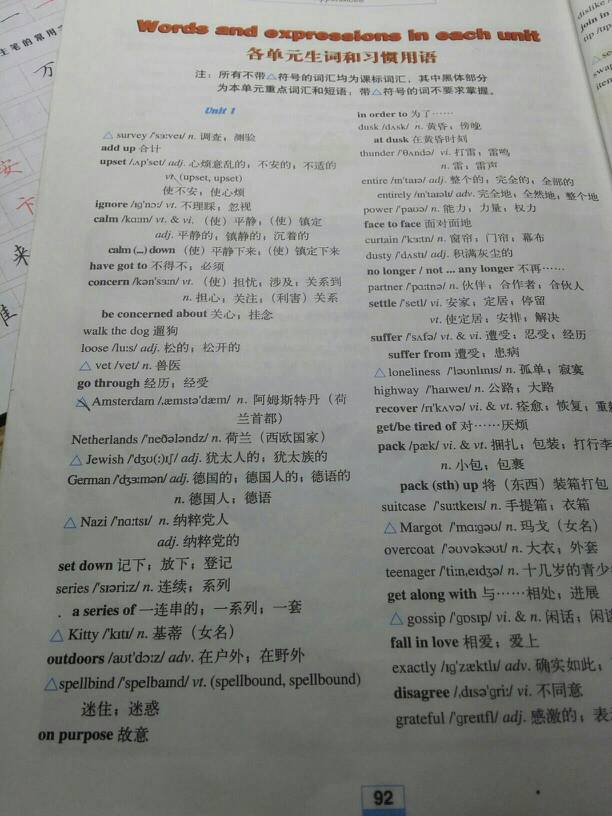 Words and expressions in each unit
各单元生词和习惯用语
注：所有不带△符号的词汇均为课标词汇，其中黑体部分
为本单元重点词汇和短语；带△符号的词不要求掌握。
Unit 1
△ survey /'sɜːveɪ/ n. 调查；测验
add up 合计
upset /ʌp'set/ adj. 心烦意乱的；不安的；不适的
vt. (upset, upset)
使不安；使心烦
ignore /ɪg'nɔː/ vt. 不理睬；忽视
calm /kɑːm/ vt. & vi. （使）平静；（使）镇定
adj. 平静的；镇静的；沉着的
calm (...) down （使）平静下来；（使）镇定下来
have got to 不得不；必须
concern /kən'sɜːn/ vt. （使）担忧；涉及；关系到
n. 担心；关注；（利害）关系
be concerned about 关心；挂念
walk the dog 遛狗
loose /luːs/ adj. 松的；松开的
△ vet /vet/ n. 兽医
go through 经历；经受
△ Amsterdam /ˌæmstə'dæm/ n. 阿姆斯特丹（荷
兰首都）
Netherlands /'neðələndz/ n. 荷兰（西欧国家）
△ Jewish /'dʒʊ(ː)ɪʃ/ adj. 犹太人的；犹太族的
German /'dʒɜːmən/ adj. 德国的；德国人的；德语的
n. 德国人；德语
△ Nazi /'nɑːtsɪ/ n. 纳粹党人
adj. 纳粹党的
set down 记下；放下；登记
series /'sɪəriːz/ n. 连续；系列
a series of 一连串的；一系列；一套
△ Kitty /'kɪtɪ/ n. 基蒂（女名）
outdoors /aʊt'dɔːz/ adv. 在户外；在野外
△ spellbind /'spelbaɪnd/ vt. (spellbound, spellbound)
迷住；迷惑
on purpose 故意
in order to 为了……
dusk /dʌsk/ n. 黄昏；傍晚
at dusk 在黄昏时刻
thunder /'θʌndə/ vi. 打雷；雷鸣
n. 雷；雷声
entire /ɪn'taɪə/ adj. 整个的；完全的；全部的
entirely /ɪn'taɪəlɪ/ adv. 完全地；全然地；整个地
power /'paʊə/ n. 能力；力量；权力
face to face 面对面地
curtain /'kɜːtn/ n. 窗帘；门帘；幕布
dusty /'dʌstɪ/ adj. 积满灰尘的
no longer / not ... any longer 不再……
partner /'pɑːtnə/ n. 伙伴；合作者；合伙人
settle /'setl/ vi. 安家；定居；停留
vt. 使定居；安排；解决
suffer /'sʌfə/ vt. & vi. 遭受；忍受；经历
suffer from 遭受；患病
△ loneliness /'ləʊnlɪnɪs/ n. 孤单；寂寞
highway /'haɪweɪ/ n. 公路；大路
recover /rɪ'kʌvə/ vi. & vt. 痊愈；恢复；重
get/be tired of 对……厌烦
pack /pæk/ vi. & vt. 捆扎；包装；打行李
n. 小包；包裹
pack (sth) up 将（东西）装箱打包
suitcase /'suːtkeɪs/ n. 手提箱；衣箱
△ Margot /'mɑːgəʊ/ n. 玛戈（女名）
overcoat /'əʊvəkəʊt/ n. 大衣；外套
teenager /'tiːnˌeɪdʒə/ n. 十几岁的青少
get along with 与……相处；进展
△ gossip /'gɒsɪp/ vi. & n. 闲话；闲
fall in love 相爱；爱上
exactly /ɪg'zæktlɪ/ adv. 确实如此；
disagree /ˌdɪsə'griː/ vi. 不同意
grateful /'greɪtfl/ adj. 感激的；表
92